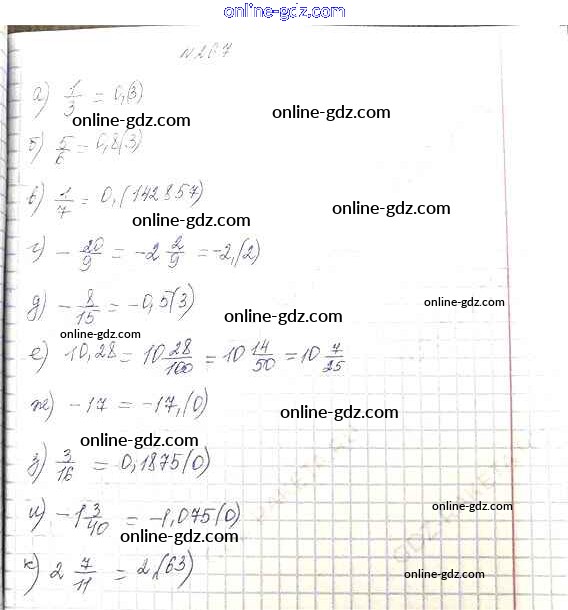 online-gdz.com
N 267
а) 1/3 = 0,(3)
online-gdz.com online-gdz.com
б) 5/6 = 0,8(3)
online-gdz.com
в) 1/7 = 0,(142857)
online-gdz.com online-gdz.com
г) - 20/9 = -2 2/9 = -2,(2)
д) - 8/15 = -0,5(3)
online-gdz.com online-gdz.com
online-gdz.com
е) 10,28 = 10 28/100 = 10 14/50 = 10 7/25
ж) -17 = -17,(0)
online-gdz.com
online-gdz.com
з) 3/16 = 0,1875(0)
online-gdz.com
и) -1 3/40 = -1,075(0)
online-gdz.com
к) 2 7/11 = 2,(63)
online-gdz.com